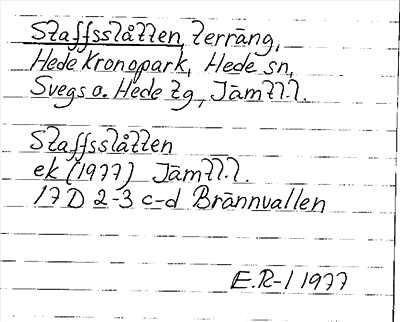 Staffsslåtten, terräng,
Hede Kronopark, Hede sn,
Svegs o. Hede tg, Jämtl.l.
Staffsslåtten
ek (1977) Jämtl.l.
17D 2-3 c-d Brännvallen
E.R-l 1977